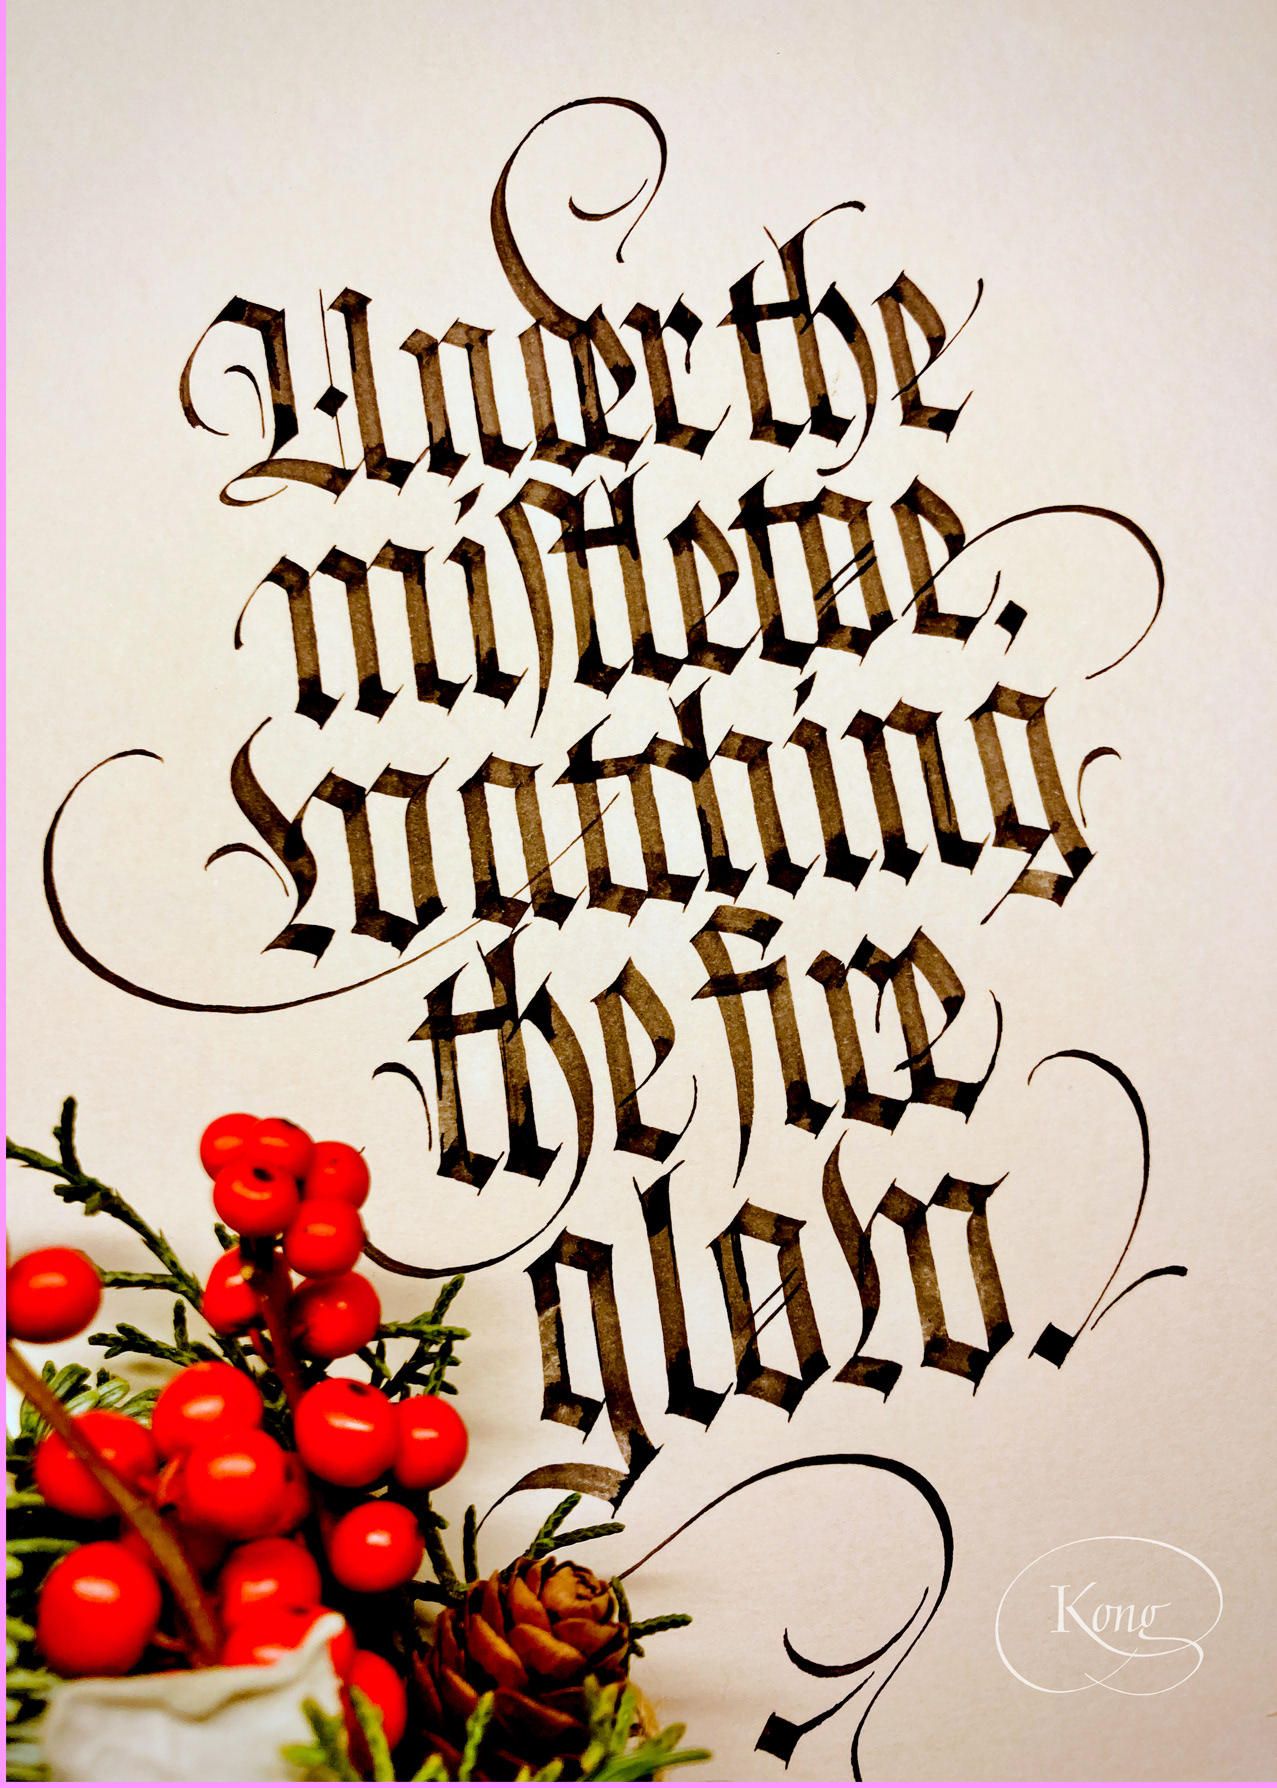 Under the
miſtletoe.
Watching
the fire
glow.
Kong